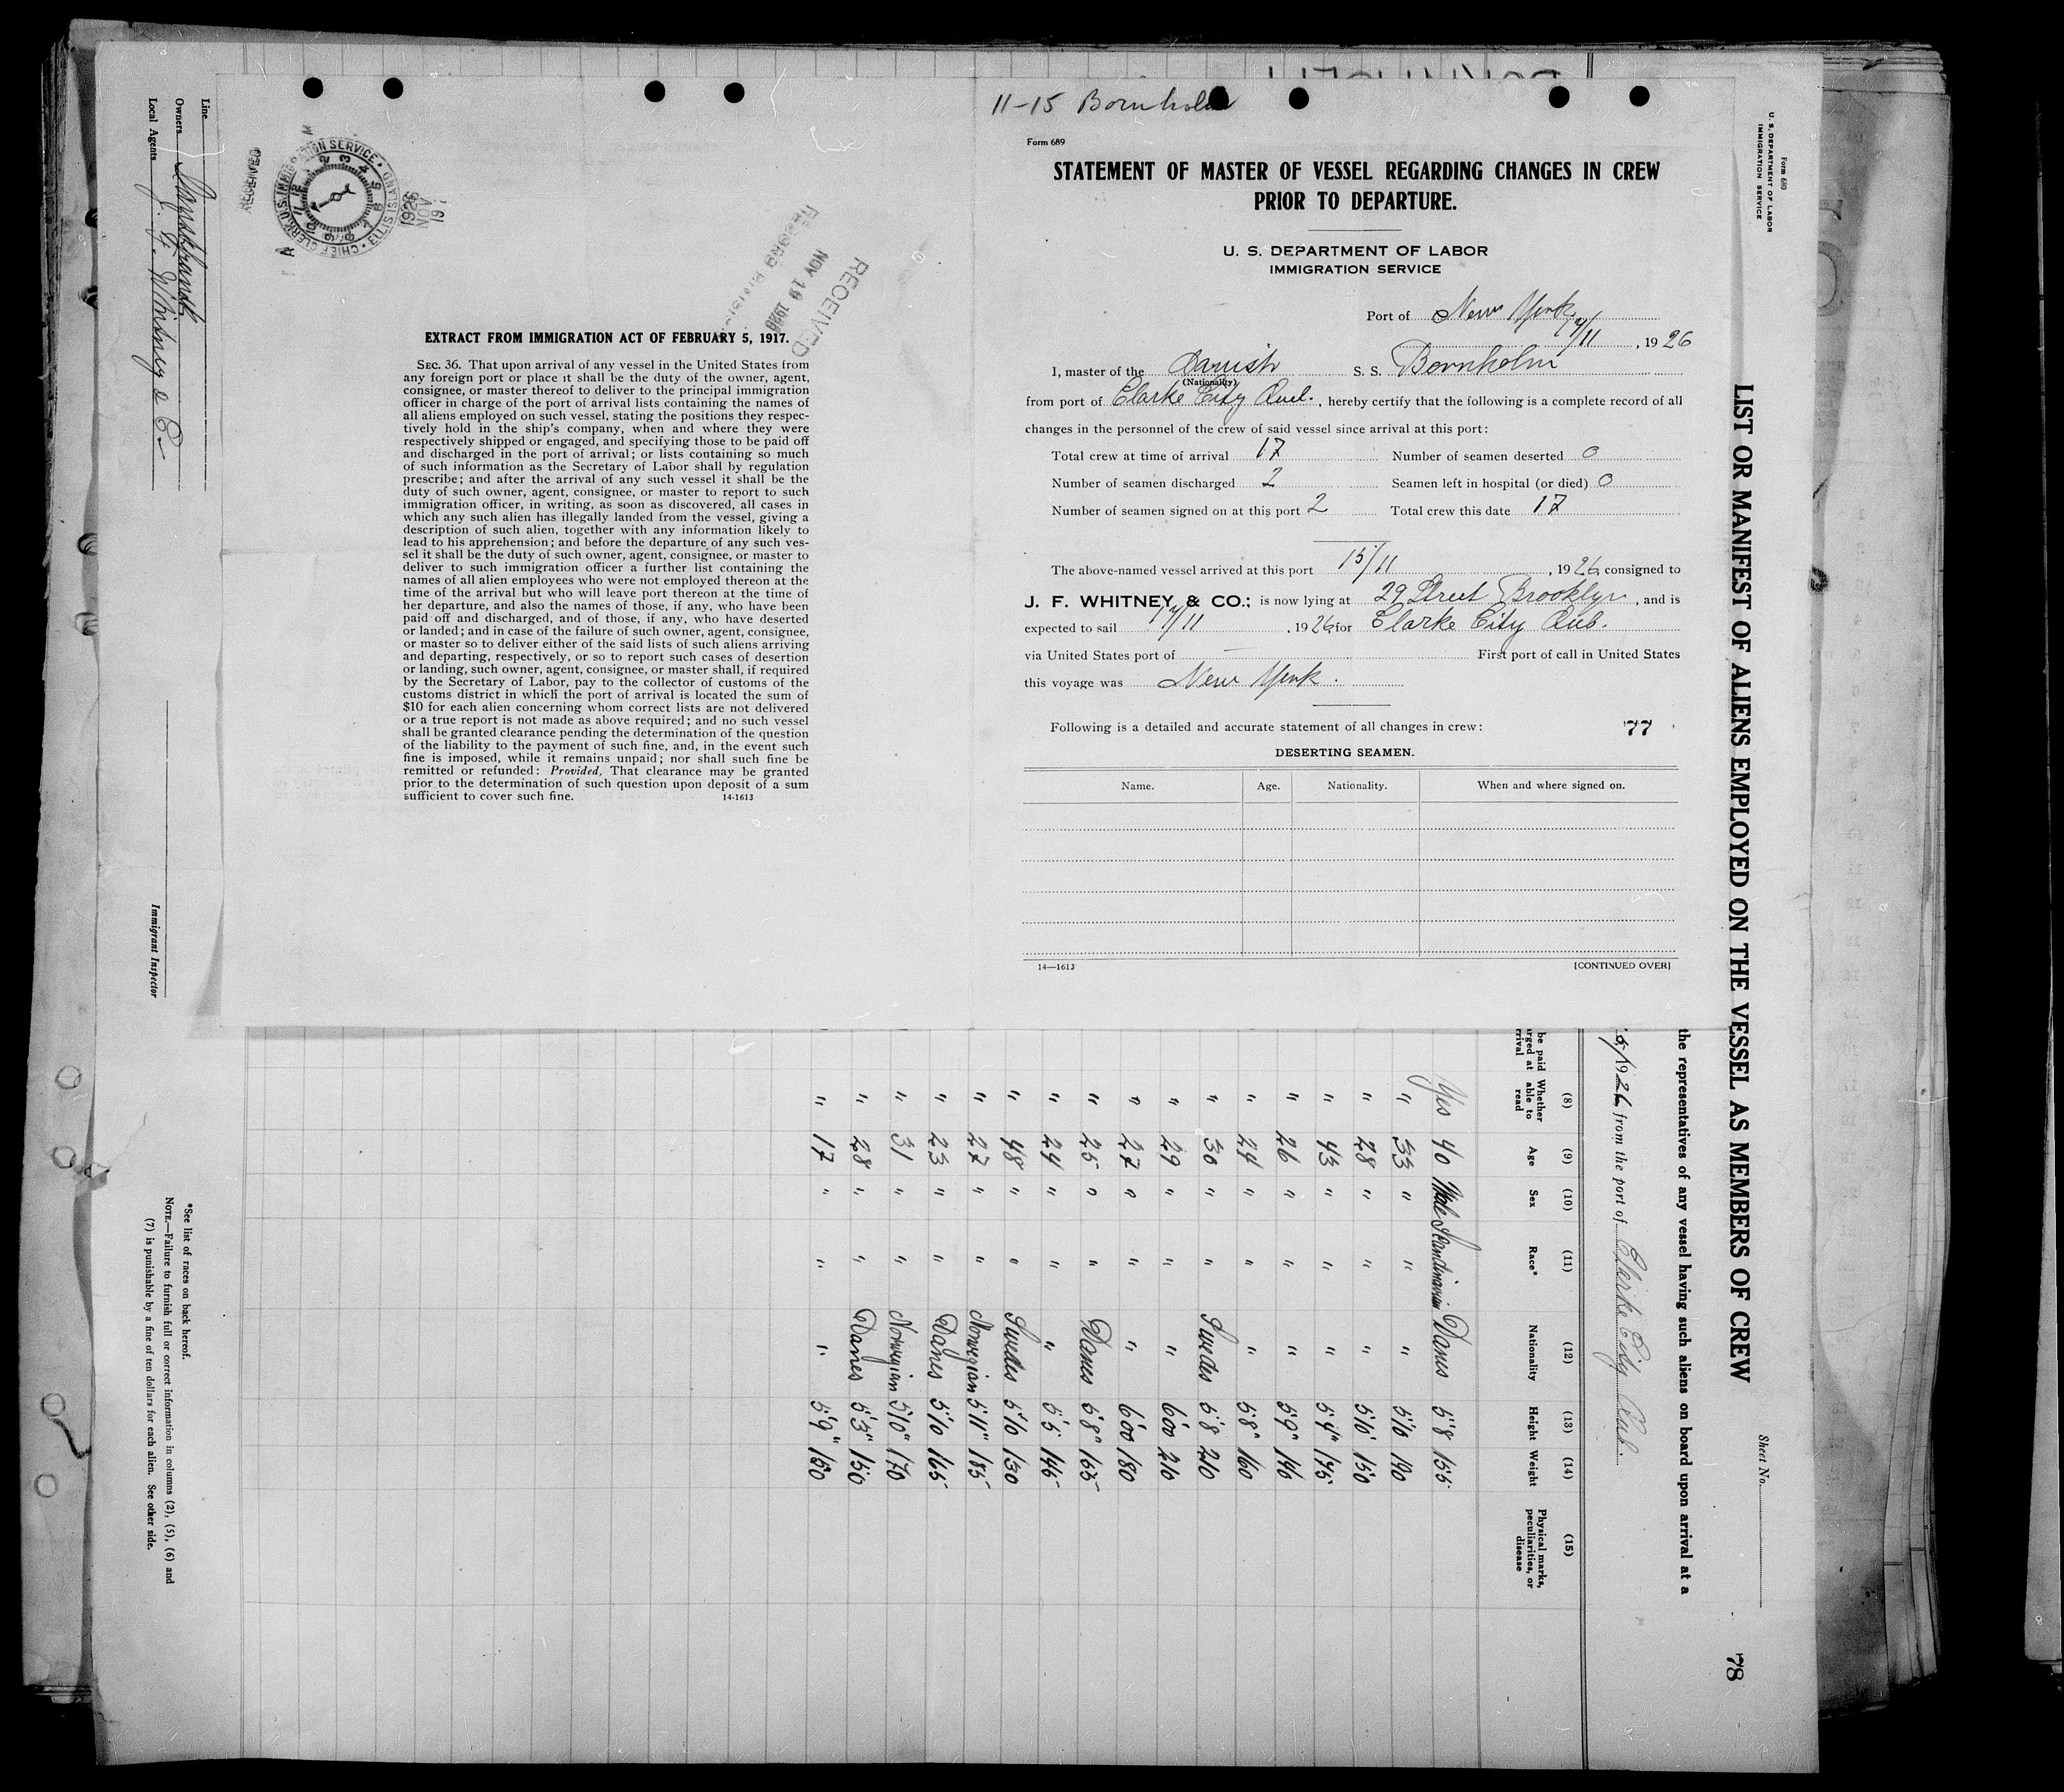 11-15 Bornholm
Form 689
STATEMENT OF MASTER OF VESSEL REGARDING CHANGES IN CREW
PRIOR TO DEPARTURE.
U. S. DEPARTMENT OF LABOR
IMMIGRATION SERVICE
Port of New York
17/11, 1926
I, master of the Danish S. S. Bornholm
(Nationality)
from port of Clarke City Queb., hereby certify that the following is a complete record of all
changes in the personnel of the crew of said vessel since arrival at this port:
Total crew at time of arrival 17 Number of seamen deserted 0
Number of seamen discharged 2 Seamen left in hospital (or died) 0
Number of seamen signed on at this port 2 Total crew this date 17
The above-named vessel arrived at this port 15/11, 1926, consigned to
J. F. WHITNEY & CO.; is now lying at 29 Street Brooklyn, and is
expected to sail 17/11, 1926 for Clarke City Qub.
via United States port of — First port of call in United States
this voyage was New York.
Following is a detailed and accurate statement of all changes in crew: 77
DESERTING SEAMEN.
Name. Age. Nationality. When and where signed on.
14—1613 [CONTINUED OVER]
RECEIVED
CHIEF CLERK U.S. IMMIGRATION SERVICE ELLIS ISLAND
1926 NOV 19
RECEIVED
NOV 19 1926
EXTRACT FROM IMMIGRATION ACT OF FEBRUARY 5, 1917.
SEC. 36. That upon arrival of any vessel in the United States from
any foreign port or place it shall be the duty of the owner, agent,
consignee, or master thereof to deliver to the principal immigration
officer in charge of the port of arrival lists containing the names of
all aliens employed on such vessel, stating the positions they respec-
tively hold in the ship's company, when and where they were
respectively shipped or engaged, and specifying those to be paid off
and discharged in the port of arrival; or lists containing so much
of such information as the Secretary of Labor shall by regulation
prescribe; and after the arrival of any such vessel it shall be the
duty of such owner, agent, consignee, or master to report to such
immigration officer, in writing, as soon as discovered, all cases in
which any such alien has illegally landed from the vessel, giving a
description of such alien, together with any information likely to
lead to his apprehension; and before the departure of any such ves-
sel it shall be the duty of such owner, agent, consignee, or master to
deliver to such immigration officer a further list containing the
names of all alien employees who were not employed thereon at the
time of the arrival but who will leave port thereon at the time of
her departure, and also the names of those, if any, who have been
paid off and discharged, and of those, if any, who have deserted
or landed; and in case of the failure of such owner, agent, consignee,
or master so to deliver either of the said lists of such aliens arriving
and departing, respectively, or so to report such cases of desertion
or landing, such owner, agent, consignee, or master shall, if required
by the Secretary of Labor, pay to the collector of customs of the
customs district in which the port of arrival is located the sum of
$10 for each alien concerning whom correct lists are not delivered
or a true report is not made as above required; and no such vessel
shall be granted clearance pending the determination of the question
of the liability to the payment of such fine, and, in the event such
fine is imposed, while it remains unpaid; nor shall such fine be
remitted or refunded: Provided, That clearance may be granted
prior to the determination of such question upon deposit of a sum
sufficient to cover such fine. 14-1613
Form 680
U. S. DEPARTMENT OF LABOR
IMMIGRATION SERVICE
Sheet No.
78
LIST OR MANIFEST OF ALIENS EMPLOYED ON THE VESSEL AS MEMBERS OF CREW
the representatives of any vessel having such aliens on board upon arrival at a
1926 from the port of Clarke City Qub.
(8) (9) (10) (11) (12) (13) (14) (15)
Whether able to read Age Sex Race* Nationality Height Weight Physical marks, peculiarities, or disease
Yes 40 Male Scandinavian Danes 5'8 155
" 33 " " " 5'10 190
" 28 " " " 5'10 150
" 43 " " " 5'4" 175
" 26 " " " 5'9" 146
" 24 " " " 5'8" 160
" 30 " " Swedes 5'8 210
" 29 " " " 6'00 210
" 27 " " " 6'00 180
" 25 " " Danes 5'8" 165
" 24 " " " 5'5 145
" 48 " " Swedes 5'10 150
" 27 " " Norwegian 5'11" 185
" 23 " " Danes 5'10 165
" 31 " " Norwegian 5'10" 170
" 28 " " Danes 5'3" 150
" 17 " " " 5'9" 150
Line
Owners
Local Agents J. F. Whitney & Co
Immigrant Inspector
*See list of races on back hereof.
NOTE.—Failure to furnish full or correct information in columns (2), (5), (6) and
(7) is punishable by a fine of ten dollars for each alien. See other side.